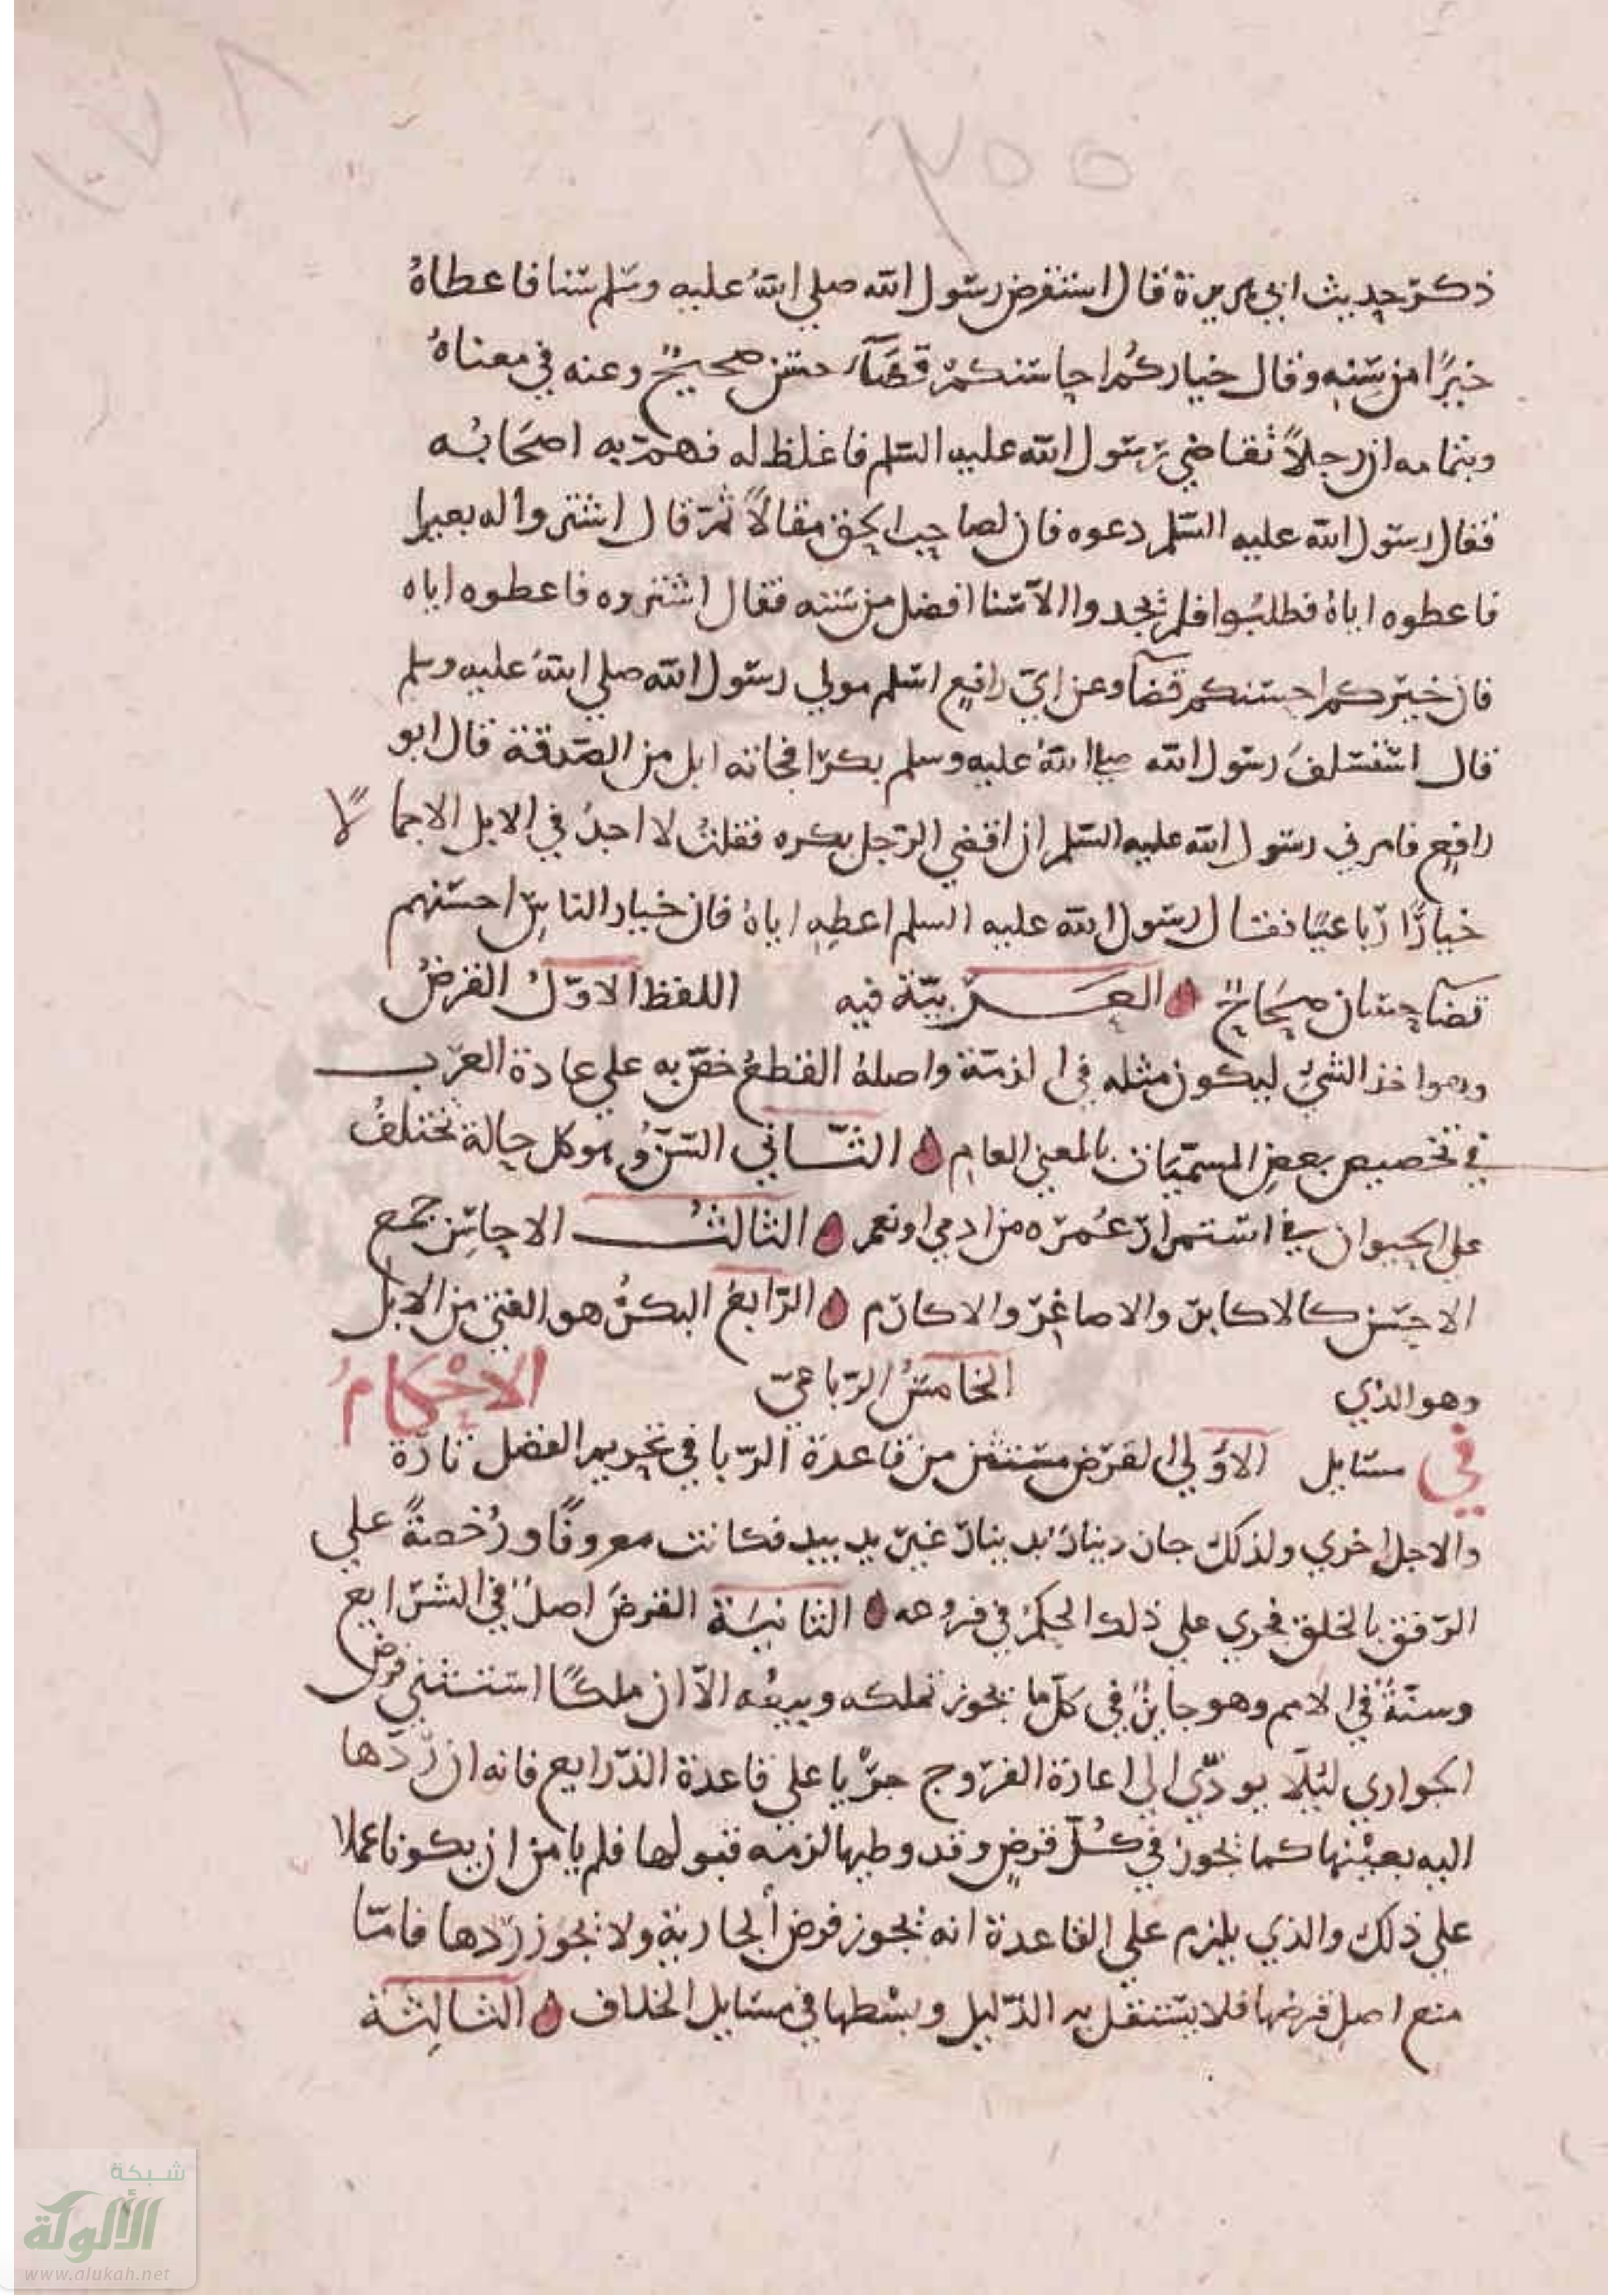 ٢٥٥
١٧٨
ذكر حديث ابي هريرة قال استقرض رسول الله صلي اللهُ عليه وسلم سنا فاعطاهُ
خيرًا من سِنِه وقال خياركُم احاسنكم قضآء حسن صحيحٌ وعنه في معناهُ
وبتمامه ان رجلاً تقاضي رسول الله عليه السلم فاغلظ له فهم به اصحَابُه
فقال رسول الله عليه السلم دعوه فان لصاحب الحق مقالاً ثمّ قال اشتروا له بعيرا
فاعطوه اياهُ فطلبُوا فلم يجدوا الا سنا افضل من سنه فقال اشتروه فاعطوه اياه
فان خيركم احسنكم قضآ وعن ابي رافع اسلم مولي رسول الله صلي اللهُ عليه وسلم
قال استسلفَ رسول الله صلى اللهُ عليه وسلم بكرًا فجاته ابل من الصدقة قال ابو
رافع فامرني رسول الله عليه السلم ان اقضي الرجل بكره فقلتُ لا اجدُ في الابل الا جملا
خيارًا رباعيًا فقال رسول الله عليه السلم اعطِهِ اياهُ فان خيار الناسِ احسنهم
قضآ حسان صحَاحٌ العربيّة فيه اللفظ الاوّلُ القرضُ
وهو اخذ الشيء ليكون مثله في الذمّة واصلهُ القطعُ خصّ به علي عادة العرب
في تخصيص بعضِ المسمّيات بالمعني العامِ الثّاني السّنُ وهو كل حالة تختلفُ
علي الحيوان في استمرار عُمره من ادمي او نعم الثالثُ الاحاسِن جمع
الاحسن كالاكابر والاصاغر والاكارم الرّابعُ البكرُ هو الفتي من الابل
وهو الذي الخامسُ الرّباعيّ الاحْكامُ
في مسايل الاوُلي القرض مستثنى من قاعدة الربا في تحريم الفضل تارة
والاجل اخري ولذلك جاز دينارٌ بدينار غير يد بيد فكانت معروفًا ورُخصةً علي
الرفق بالخلق فجري علي ذلك الحكمُ في فروعه الثانيَة القرضُ اصلٌ في الشرايع
وسنّةٌ في الامم وهو جايزٌ في كلّ ما يجوز تملكه وبيعُه الاّ ان ملكًا استثني قرض
الجواري ليلا يودّي الي اعارة الفروج جرْيا علي قاعدة الذّرايع فانه ان ردّها
اليه بعيْنها كما يجوز في كُلّ قرضٍ وقد وطيها لزمه قبولها فلم يامن ان يكونا عملا
علي ذلك والذي يلزم علي القاعدة انه يجوز قرض الجارية ولا يجوز ردّها فامّا
منع اصل قرضها فلا يستقل به الدّليل وبسْطها في مسايل الخلاف الثالِثة
شبكة
الألوكة
www.alukah.net